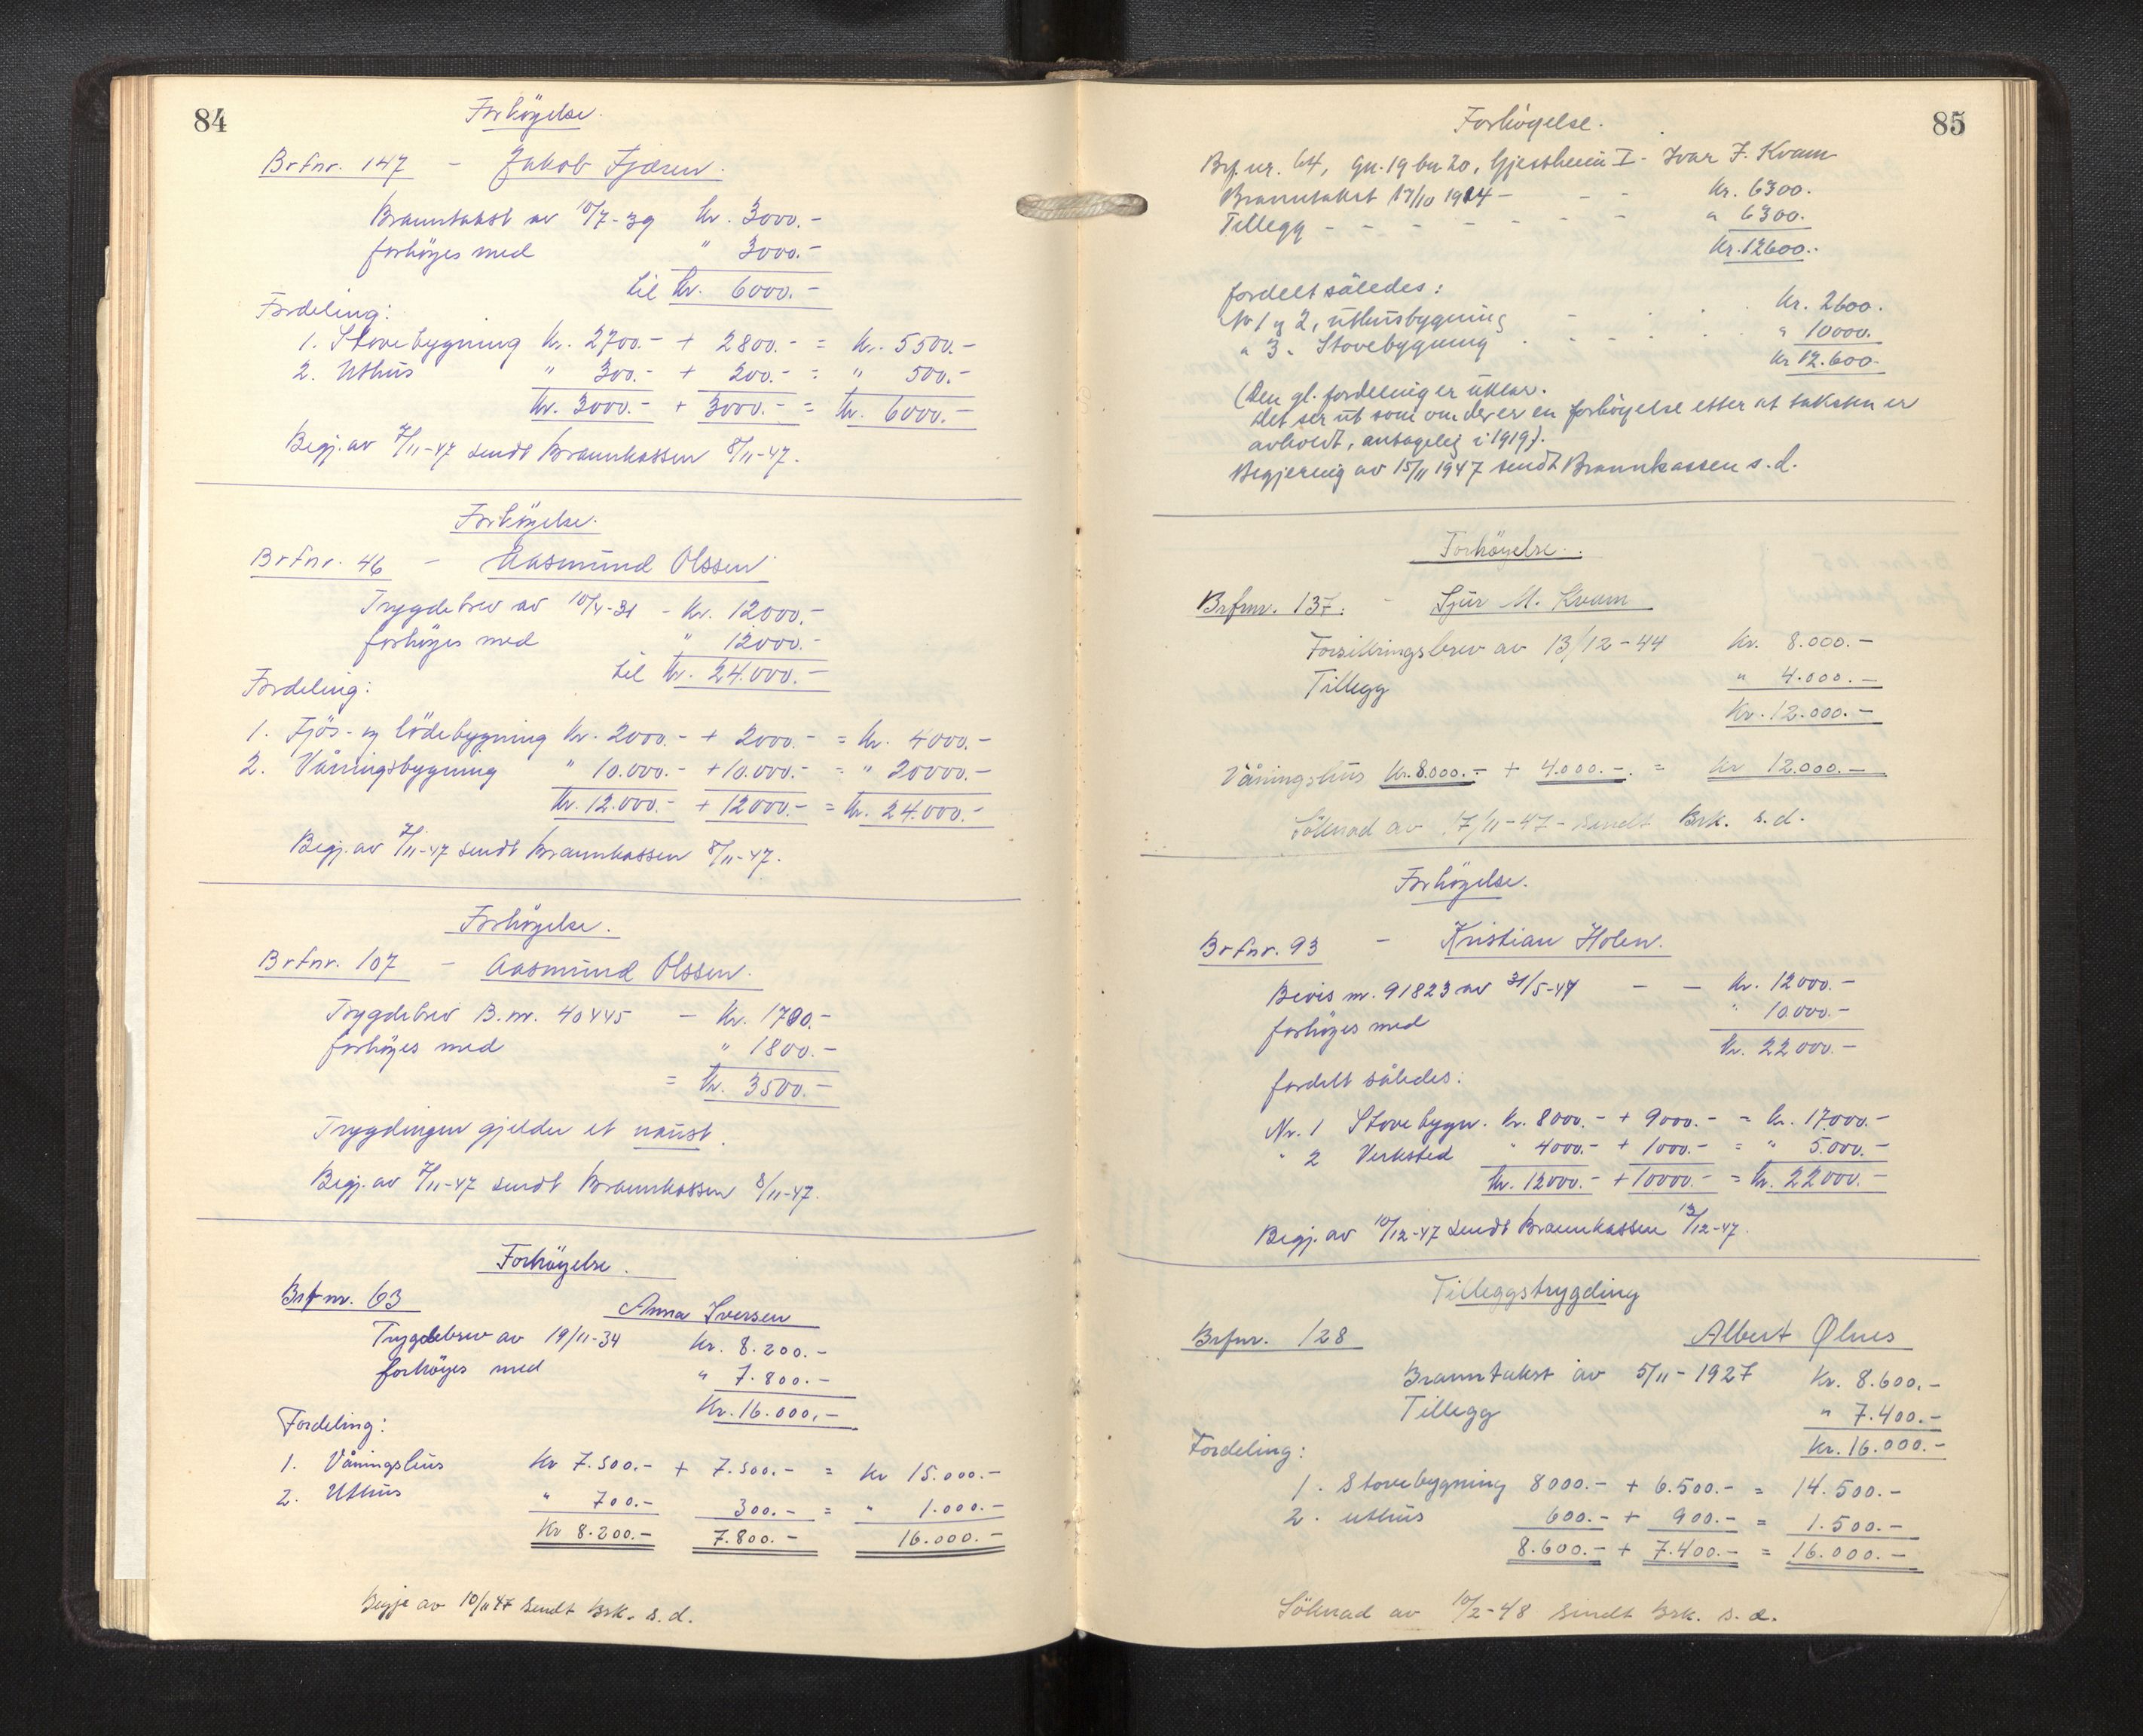 84
Forhöyelse.
Brfnr. 147 - Jakob Fjæren.
Branntakst av 10/7-39 kr. 3000.-
forhöyes med " 3000.-
til kr. 6000.-
Fordeling:
1. Stovebygning kr. 2700.- + 2800.- = kr. 5500.-
2. Uthus " 300.- + 200.- = " 500.-
kr. 3000.- + 3000.- = kr. 6000.-
Begj. av 7/11-47 sendt Brannkassen 8/11-47.
Forhöyelse.
Brfnr. 46 - Aasmund Olssen
Trygdebrev av - kr. 12000.-
forhöyes med " 12000.-
til kr. 24.000.-
Fordeling:
1. Fjös- og lödebygning kr. 2000.- + 2000.- = kr. 4000.-
2. Våningsbygning " 10.000.- + 10.000.- = " 20000.-
kr. 12.000.- + 12000.- = kr. 24.000.-
Begj. av 7/11-47 sendt Brannkassen 8/11-47.
Forhöyelse.
Brfnr. 107 - Aasmund Olssen.
Trygdebrev B.nr. 40445 - kr. 1700.-
forhöyes med " 1800.-
= kr. 3500.-
Trygdingen gjelder et naust.
Begj. av 7/11-47 sendt Brannkassen 8/11-47.
Forhöyelse.
Brfnr. 63 Anna Iversen
Trygdebrev av 19/11-34 kr. 8.200.-
forhöyes med " 7.800.-
Kr. 16.000.-
Fordeling:
1. Våningshus Kr 7.500.- + 7.500.- = Kr 15.000.-
2. Uthus " 700.- 300.- = " 1.000.-
Kr 8.200.- 7.800.- 16.000.-
Begj. av 10/11 47 sendt Brk. s.d.
85
Forhöyelse.
Brf.nr. 64, gn. 19 bn 20, Gjestheim I - Ivar J. Kvam
Branntakst 17/10 1914 - - - Kr. 6300.
Tillegg - - - - - - " 6300.
Kr. 12600.-
fordelt således:
Nr 1 og 2, uthusbygning - . . Kr. 2600.
" 3. Stovebygning . - - . . " 10000.
Kr 12.600-
(Den gl. fordeling er uklar.
Det ser ut som om der er en forhöyelse etter at taksten er
avholdt, antagelig i 1919).
Begjering av 15/11 1947 sendt Brannkassen s.d.
Forhöyelse.
Brfnr. 137. - Sjur M. Kvam
Forsikringsbrev av 13/12-44 Kr. 8.000.-
Tillegg " 4.000.-
Kr. 12.000.-
Våningshus Kr. 8.000.- + 4.000.- = Kr 12.000.-
Söknad av 17/11-47 - sendt Brk. s.d.
Forhöyelse.
Brfnr. 93 - Kristian Holen.
Bevis nr. 91823 av 31/5-47 - - kr. 12000.-
forhöyes med " 10.000.-
Kr. 22000.-
fordelt således:
Nr. 1 Stovebygn. kr. 8000.- + 9000.- = kr. 17.000.-
" 2 Verksted " 4000.- + 1000.- = " 5.000.-
kr. 12000.- + 10000.- = kr. 22000.-
Begj. av 10/12-47 sendt Brannkassen 12/12-47.
Tilleggstrygding
Brfnr. 128 Albert Ølnes
Branntakst av 5/11-1927 Kr. 8.600.-
Tillegg " 7.400.-
Kr. 16.000.-
Fordeling:
1. Stovebygning 8000.- + 6.500.- = 14.500.-
2. uthus 600.- + 900.- = 1.500.-
8.600.- + 7.400.- = 16.000.-
Söknad av 10/2-48 sendt Brk. s.d.